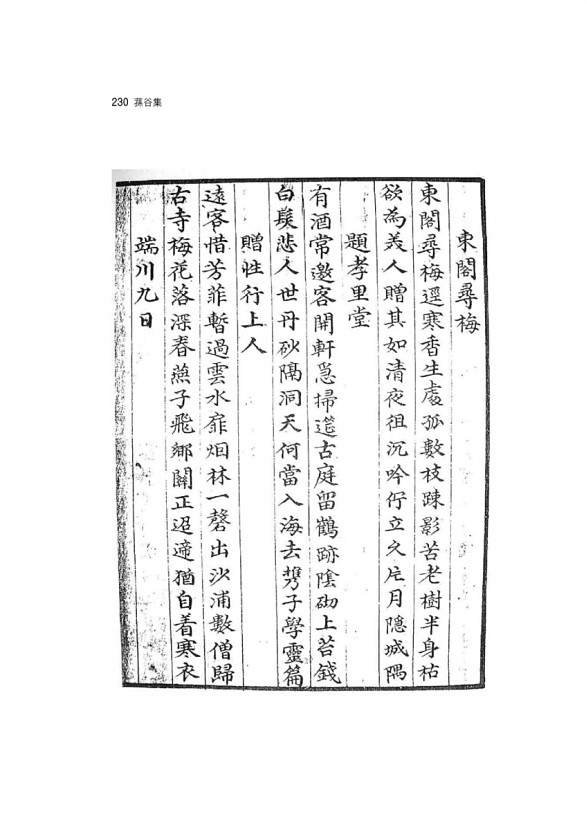 230 蓀谷集
東閣尋梅
東閣尋梅逕寒香生處孤數枝踈影苦老樹半身枯
欲為美人贈其如清夜徂沉吟佇立久片月隠城隅
題孝里堂
有酒常邀客開軒爲掃筵古庭留鶴跡陰砌上苔錢
白髮悲人世丹砂隔洞天何當入海去携子學靈篇
贈性行上人
遠客惜芳菲暫過雲水扉烟林一磬出沙浦數僧歸
古寺梅花落深春燕子飛鄉關正迢遞猶自着寒衣
端川九日